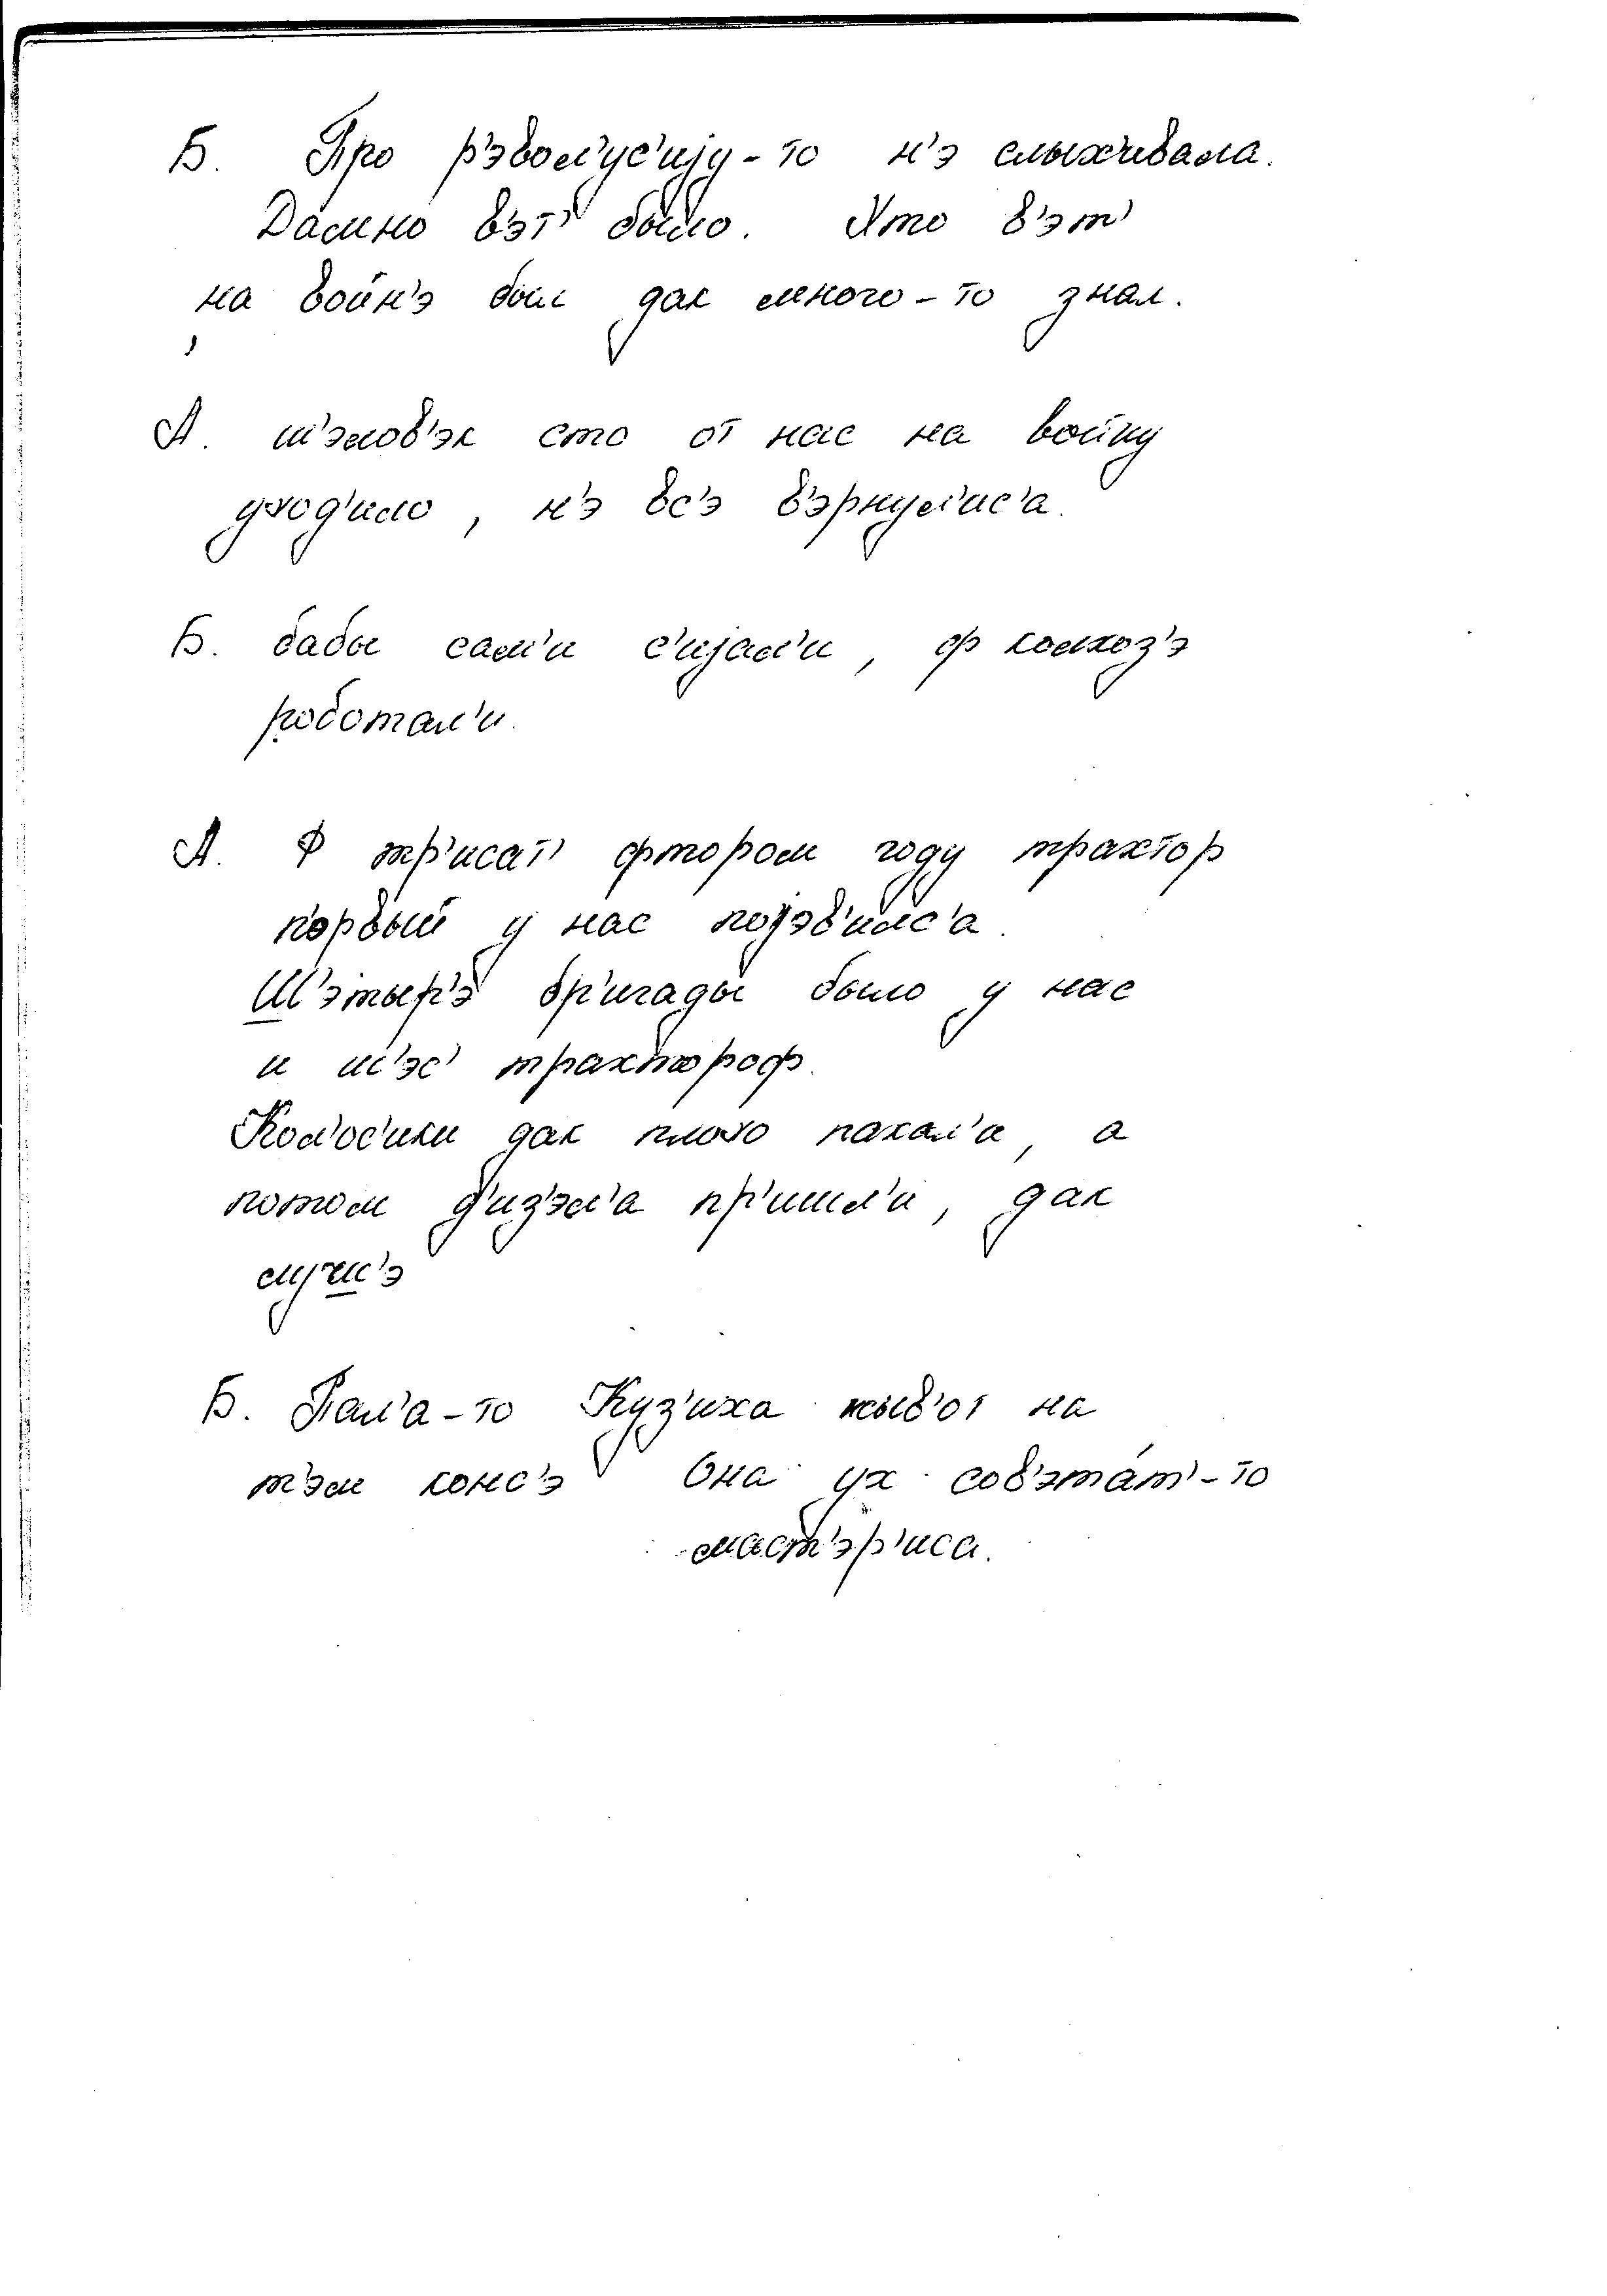 Б. Про р'эвол'ус'ију-то н'э слыхивала.
Дамно в'эт' было. Хто в'эт'
на войн'э был дак много-то знал.
А. ш'элов'эк сто от нас на войну
уход'ило, н'э вс'э в'эрнул'ис'а.
Б. бабы сам'и с'ијал'и, ф колхоз'э
роботал'и.
А. Ф тр'исат' фтором году трахтор
п'орвый у нас појэв'илс'а.
Ш'этыр'э бр'игады было у нас
и ш'эс' трахтороф.
Кол'ос'ики дак плохо пахал'и, а
потом д'из'эл'а пр'ишл'и, дак
лучш'э
Б. Пал'а-то Куз'иха жыв'от на
т'эм конс'э Она ух сов'эта́т'-то
маст'эр'иса.